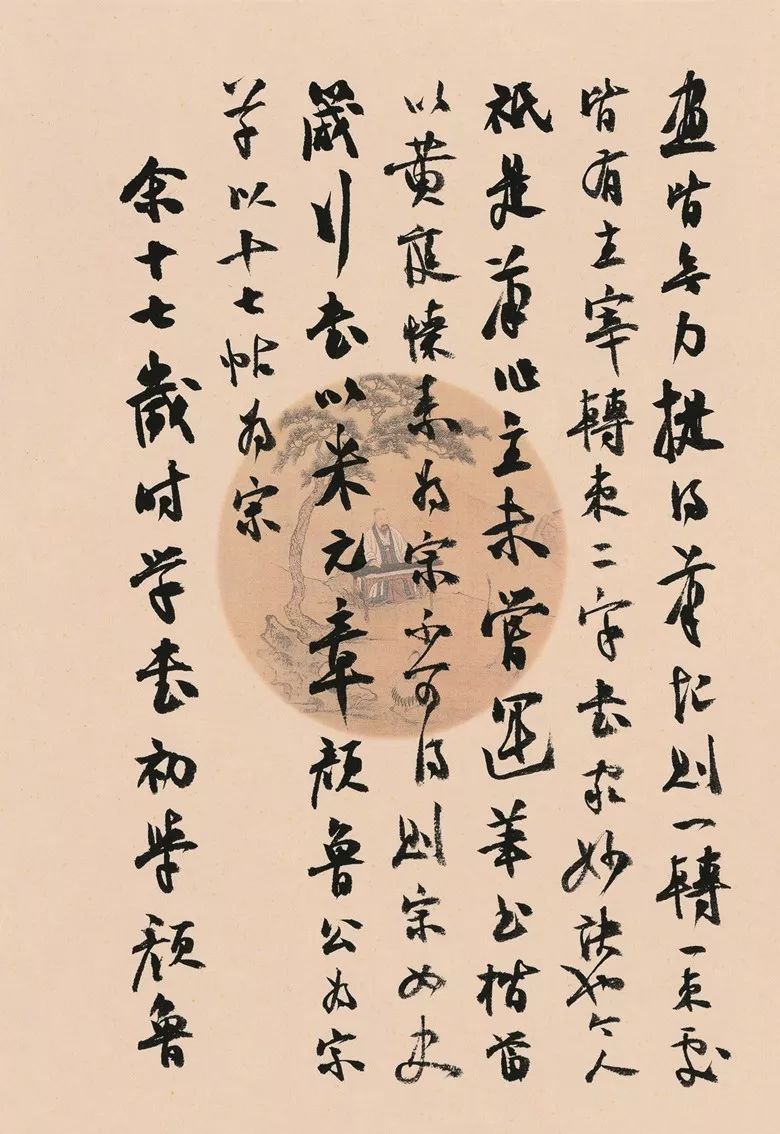 畫皆無力提得筆起則一轉一束處
皆有主宰轉束二字書家妙訣也今人
祇是筆作主未嘗運筆書楷當
以黃庭懷素為宗不可得則宗女史
箴行書以米元章顏魯公為宗
草以十七帖為宗
余十七歲時學書初學顏魯